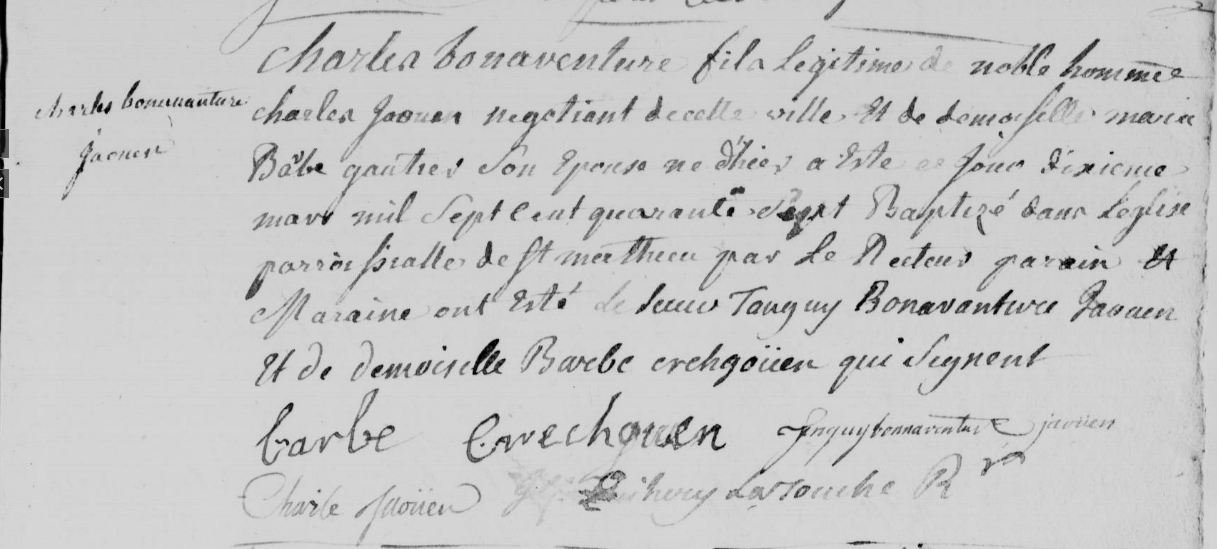 Charles bonaventure fils Legitime de noble homme
charles bonnavanture
Jaouen
charles Jaouen negotiant decette ville Et de demoiselle marie
Barbe gautier Son Epouse ne d'hier a Este ce Jour dixieme
mars mil Sept Cent quarante Sept Baptizé dans Leglise
parroissialle de St matthieu par Le Recteur parain Et
Maraine ont Esté le sieur Tanguy Bonavanture Jaouen
Et de demoiselle Barbe crehgoüen qui Signent
barbe Crechguen Tnguy bonnaventure jaouen
Charle Jaoüen Latouche R